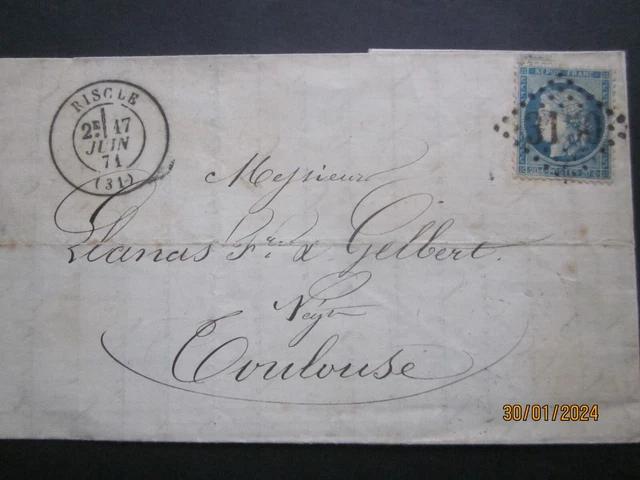 RISCLE
2E 17
JUIN
71
(31)
REPUB FRANC
Messieurs
Llanas Fres & Gelbert.
Négts
Toulouse
30/01/2024